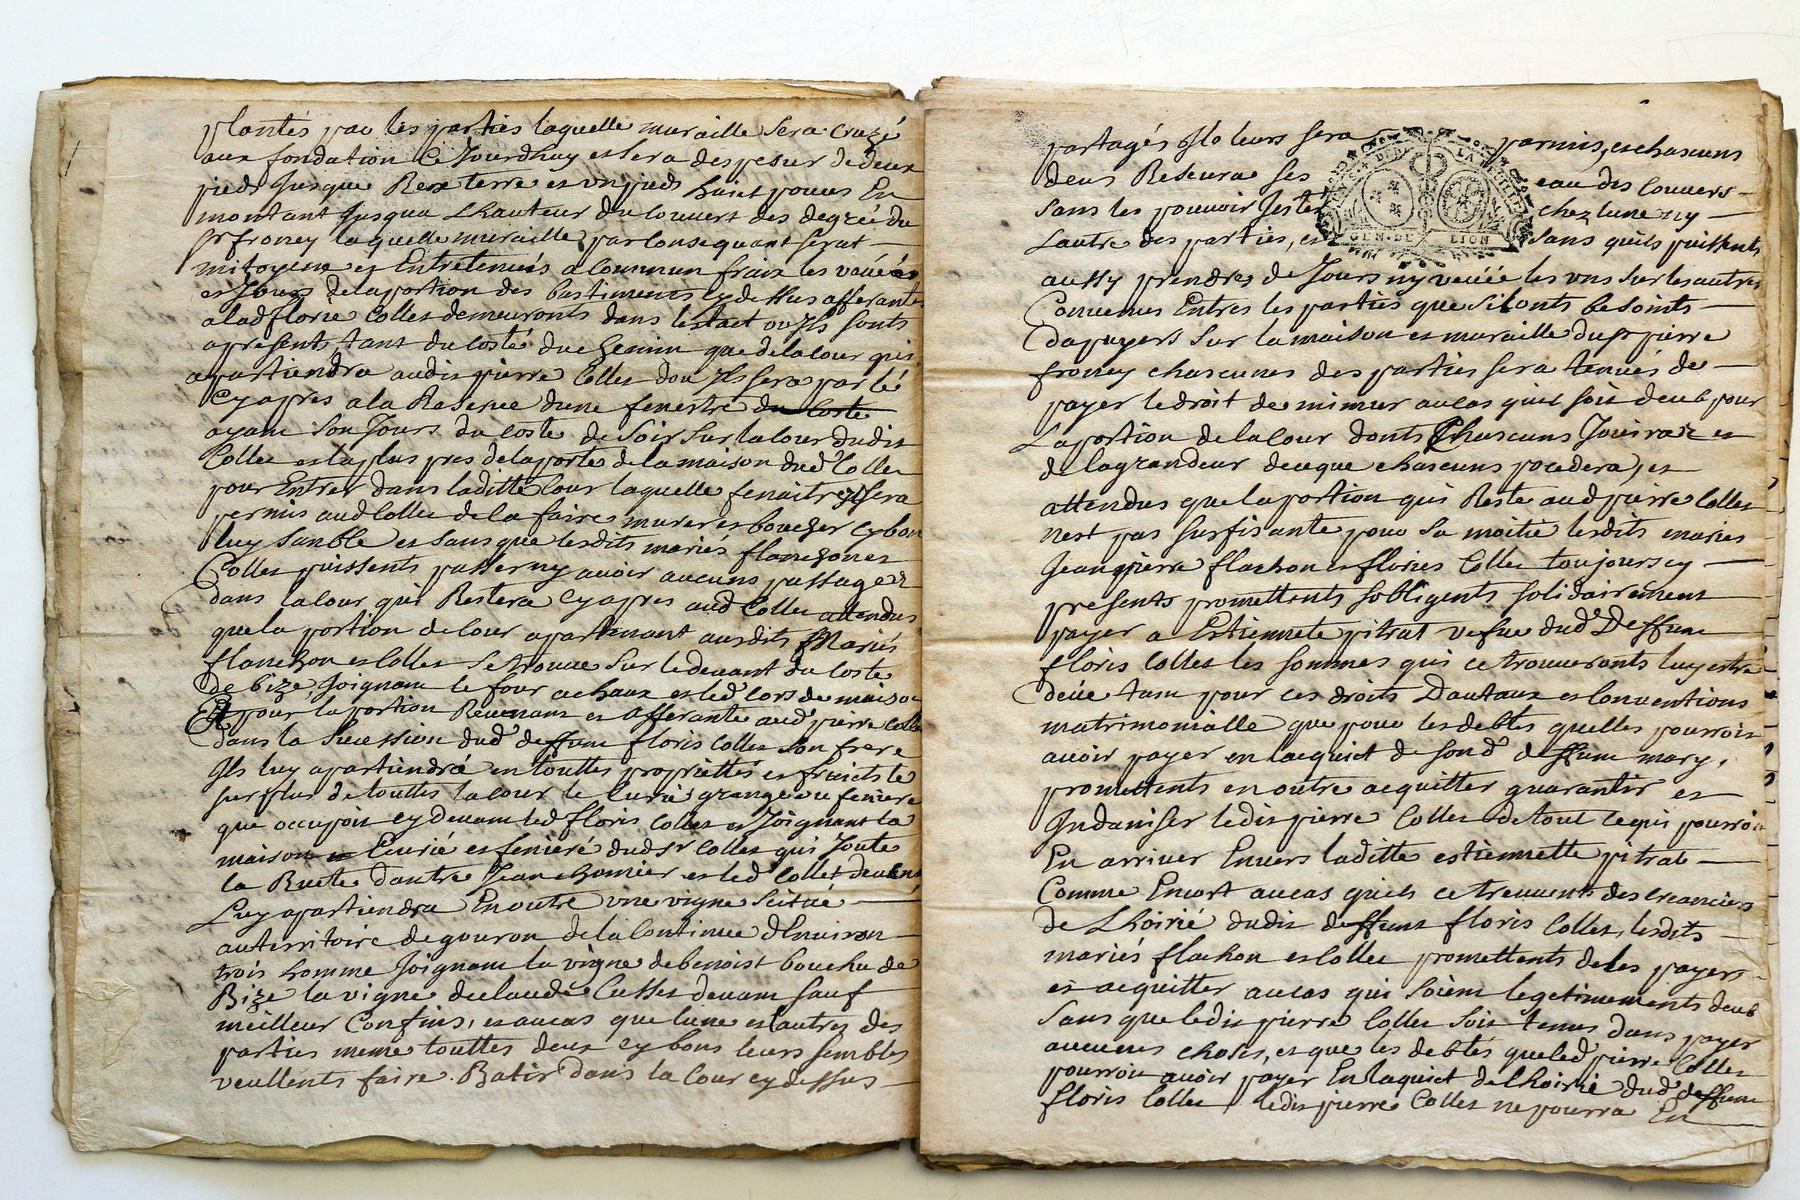 plantés par les parties laquelle muraille sera cruzé
aux fondation Ce Jourdhuy et sera despesur de deux
pieds Jusque Reze terre et un pieds huict pouces En
montant Jusqua Lhauteur du couvert des degrée du
Sr froney laquelle muraille par Consequant serat
mitoyene et Entretenües a Commun fraix les vauëes
et Jours delaportion des bastiments cy dessus afferante
alad florie Collet demeuronts dans lestaet ou Jls sonts
apresent, tant du Costé du chemin que delacour qui
apartiendra audit pierre Collet dou Jls sera parlé
Cyapres ala Reserve dune fenestre du Coste
ayam son Jours du Coste de soir sur lacour dudit
Collet et laplus pres delaporte de la maison dud Collet
pour Entrer dans laditte Cour laquelle fenaitre Jl sera
permis aud Collet de la faire murer et boucher cy bon
luy samble et sans que lesdits mariés flanchon et
Collet puissents passer ny avoir aucuns passage
dans lacour qui Restera Cyapres aud Collet attendus
que la portion de Cour apartenant ausdits Mariés
flanchon et Collet se trouve sur le devant du Coste
de bize, Joignam le four achaux et led Cors de maison
Et pour la portion Revenans et afferante aud pierre Collet
dans la Sucession dud deffunt floris Collet son frere
Jls luy apartiendra en touttes propriettés et fruicts le
surplus de touttes lacour le Curié grange ou feniere
que occupoit cy devant led floris Collet et Joignant la
maison Ecurié et feniere dud Sr Collet qui Joute
la Ruette dautre Jean chomier et led Collet
Luy apartiendra En outre une vigne Scitué
auterritoire de gouron dela Continuee dEnviron
trois homme Joignam la vigne debenoist bouchu de
Bize la vigne declaude Cusset devam sauf
meilleur Confins, et aucas que lune et lautres des
parties meme touttes deux cy bons leurs sembles
veullents faire Batir dans la Cour cy dessus
partagés Jls leurs sera parmis, et chascuns
deux Reseura ses eau des Couvers
sans les pouvoir Jester chez lune ny
Lautre des parties, et sans quils puissents
aussy prendres de Jours ny veuëe les uns sur les autres
Convenus Entres les parties que silonts besoints
dapuyers sur lamaison et muraille du Sr pierre
froney chascunes des parties sera tenues de
payer le droit de mimur aucas quil soit deub pour
Laportion de la Cour donts Chascuns Jouira et
de la grandeur deceque chascuns pocedera, et
attendus que laportion qui Reste aud pierre Collet
nest pas surfisante pour sa moitié lesdits mariés
Jeanpierre flachon et flories Collet toujours cy
presents promettents sobligents solidairement
payer a Estiennete pitrat vefve dud Deffunt
floris Collet les sommes qui ce trouveronts luy estre
deüe tam pour ces droits Dautaux et Conventions
matrimonialle que pour les debtes quelles pourroit
avoir payer en lacquict de son d deffunt mary,
promettents en outre acquitter guarantir et
Jndaniser ledit pierre Collet de tout ce qui pourroit
En arriver Envers laditte estiennette pitrat
Comme Encort aucas quils ce treuvents des creanciers
de Lhoirié dudit deffunt floris Collet, lesdits
mariés flachon et Collet promettents deles payers
et acquitter aucas qui soient legetimements deub
sans que ledit pierre Collet soit tenus dans payer
aucunes choses, et que les debtés que led pierre Collet
pourroit avoir payer En laquict de lhoirié dud deffunt
floris Collet ledit pierre Collet ne pourra En
GEN. DE LION